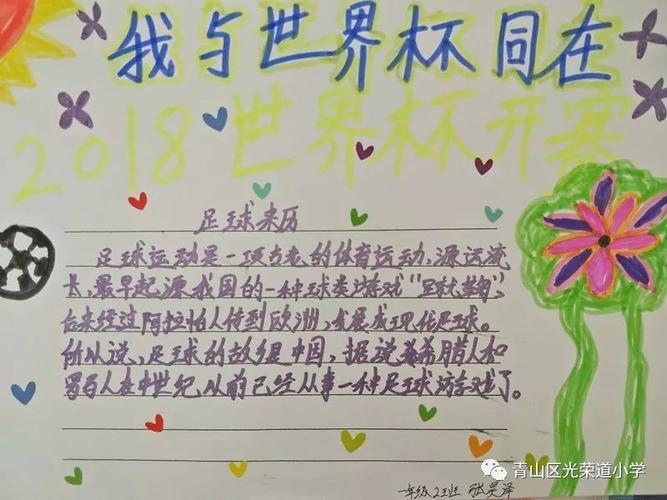 我与世界杯同在
2018世界杯开赛
足球来历
足球运动是一项古老的体育运动,源远流
长,最早起源我国的一种球类游戏“足球蹴鞠”,
后来经过阿拉伯人传到欧洲,发展成现代足球。
所以说,足球的故乡是中国,据说,希腊人和
罗马人在中世纪以前已经从事一种足球游戏了。
一年级2班 张昊泽
青山区光荣道小学